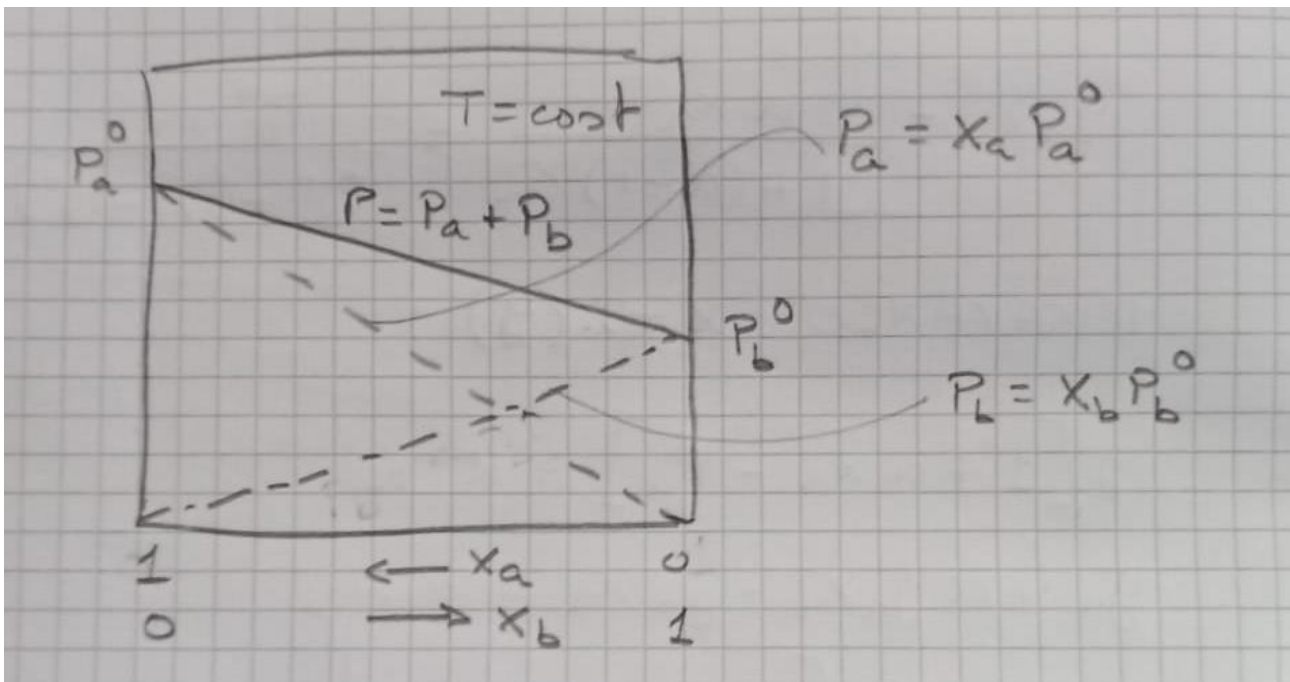 T = cost
P_a^0
P_a = x_a P_a^0
P = P_a + P_b
P_b^0
P_b = x_b P_b^0
1 ← x_a 0
0 → x_b 1